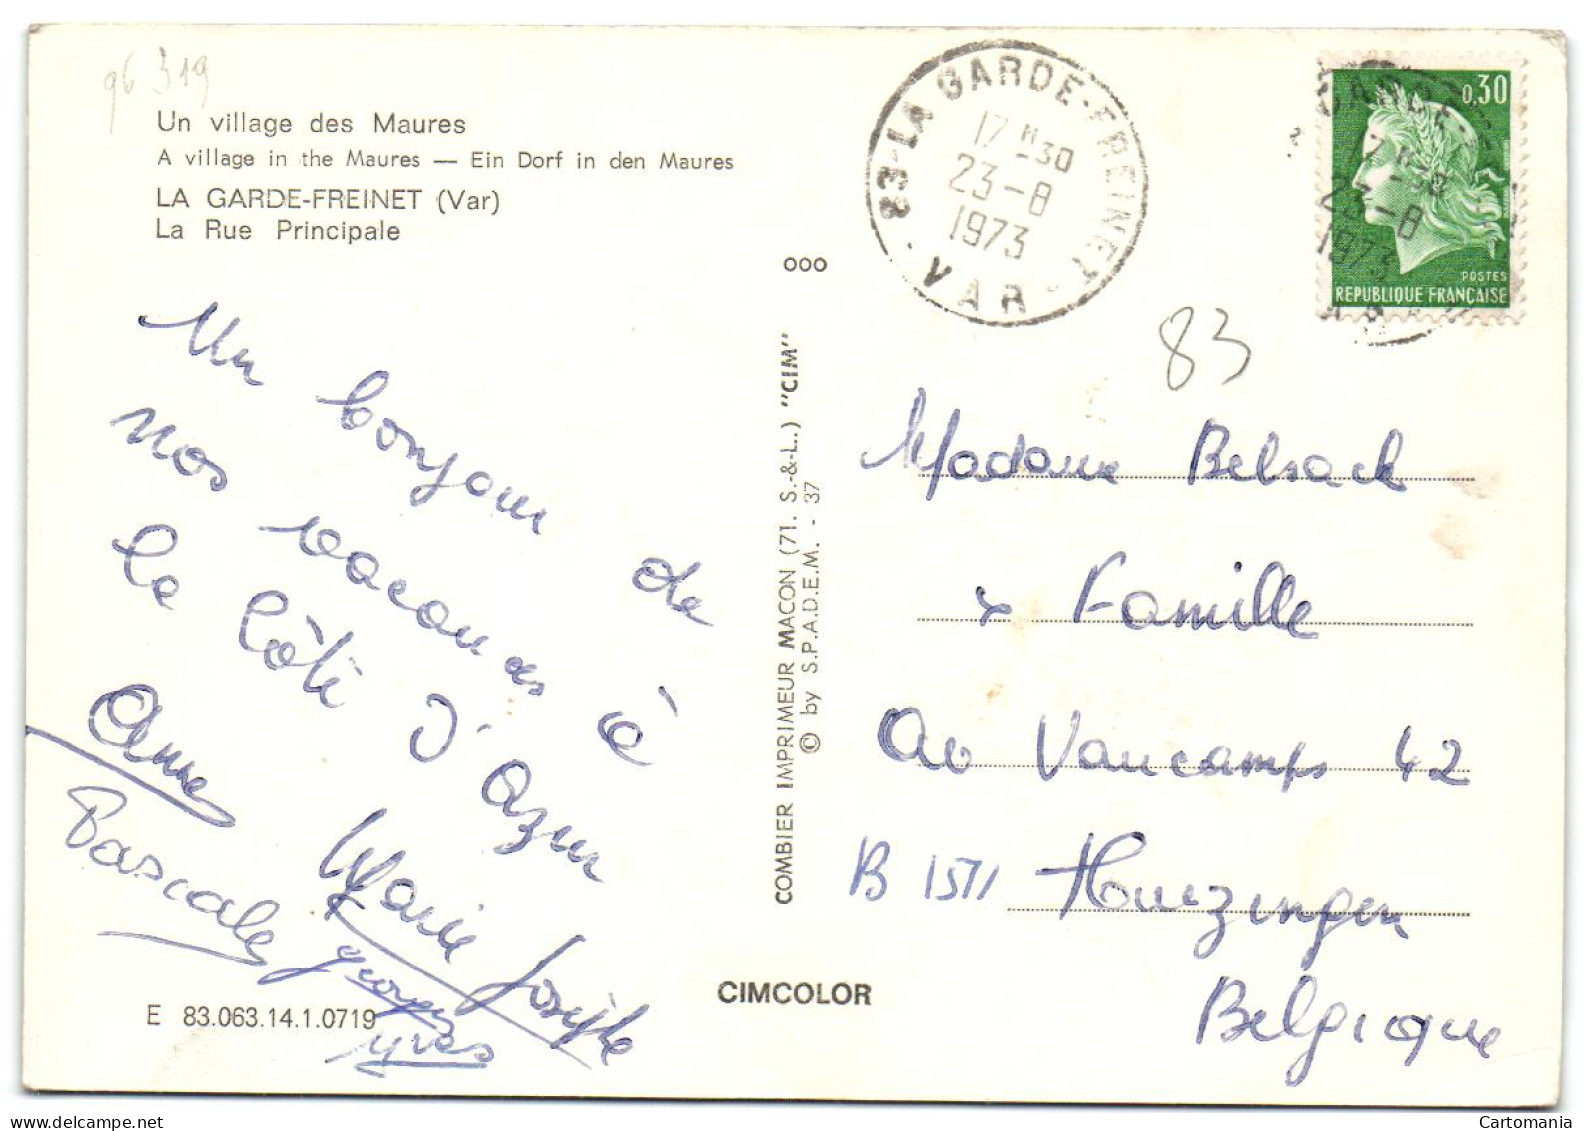 96 319
Un village des Maures
A village in the Maures — Ein Dorf in den Maures
LA GARDE-FREINET (Var)
La Rue Principale
Un bonjour de
nos vacances à
la Côte d'Azur
Anne
Marie Josèphe
Pascale
georges
yves
E 83.063.14.1.0719
CIMCOLOR
ooo
COMBIER IMPRIMEUR MACON (71. S.-&-L.) "CIM"
© by S.P.A.D.E.M. - 37
83-LA GARDE-FREINET
17 H 30
23-8
1973
VAR
0,30
POSTES
REPUBLIQUE FRANÇAISE
17 H 30
23-8
1973
83
Madame Belsack
& Famille
Av Vaucamps 42
B 1511 Huizingen
Belgique
Cartomania